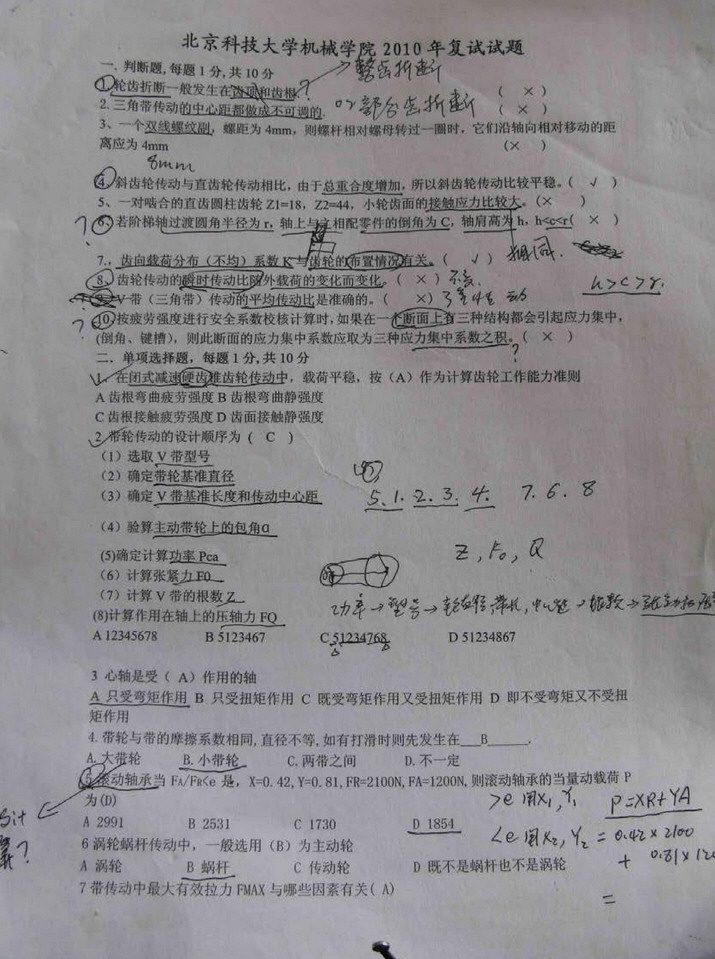 北京科技大学机械学院2010年复试试题
一.判断题,每题1分,共10分
整齿折断
①轮齿折断一般发生在齿顶和齿根? ( × )
2.三角带传动的中心距都做成不可调的. or部分齿折断 ( × )
3、一个双线螺纹副，螺距为4mm，则螺杆相对螺母转过一圈时，它们沿轴向相对移动的距
离应为4mm (× )
8mm
④斜齿轮传动与直齿轮传动相比，由于总重合度增加，所以斜齿轮传动比较平稳。( √ )
5、一对啮合的直齿圆柱齿轮Z1=18，Z2=44，小轮齿面的接触应力比较大。(× )
?⑥若阶梯轴过渡圆角半径为r，轴上与之相配零件的倒角为C，轴肩高为h，h<c<r( × )
7.，齿向载荷分布（不均）系数K与齿轮的布置情况有关。( √ ) 相同.
⑧、齿轮传动的瞬时传动比随外载荷的变化而变化。( × ) 不变. h>c>r.
V带（三角带）传动的平均传动比是准确的。( ×) 弹性 动
?⑩按疲劳强度进行安全系数校核计算时，如果在一个断面上有三种结构都会引起应力集中，
(倒角、键槽)，则此断面的应力集中系数应取为三种应力集中系数之积。( × )
?
二．单项选择题，每题1分，共10分
1、在闭式减速硬齿锥齿轮传动中，载荷平稳，按（A）作为计算齿轮工作能力准则
A 齿根弯曲疲劳强度 B 齿根弯曲静强度
C 齿根接触疲劳强度 D 齿面接触静强度
2 带轮传动的设计顺序为 ( C )
（1）选取V带型号
（2）确定带轮基准直径
（3）确定V带基准长度和传动中心距 5.1.2.3.4. 7.6.8
（4）验算主动带轮上的包角α
(5)确定计算功率Pca Z,F0,Q
（6）计算张紧力F0
（7）计算V带的根数Z
功率→型号→
(8)计算作用在轴上的压轴力FQ
A 12345678 B 5123467 C 51234768 D 51234867
3 心轴是受（ A）作用的轴
A 只受弯矩作用 B 只受扭矩作用 C 既受弯矩作用又受扭矩作用 D 即不受弯矩又不受扭
矩作用
4. 带轮与带的摩擦系数相同,直径不等,如有打滑时则先发生在___B______.
A.大带轮 B.小带轮 C.两带之间 D.不一定
⑤滚动轴承当FA/FR<e是，X=0.42,Y=0.81,FR=2100N,FA=1200N,则滚动轴承的当量动载荷P
为(D) >e用X1,Y1 P=XR+YA
A 2991 B 2531 C 1730 D 1854
<e用X2,Y2 = 0.42×2100
6 涡轮蜗杆传动中，一般选用（B）为主动轮
+ 0.81×120
A 涡轮 B 蜗杆 C 传动轮 D 既不是蜗杆也不是涡轮
7 带传动中最大有效拉力FMAX与哪些因素有关( A)
=